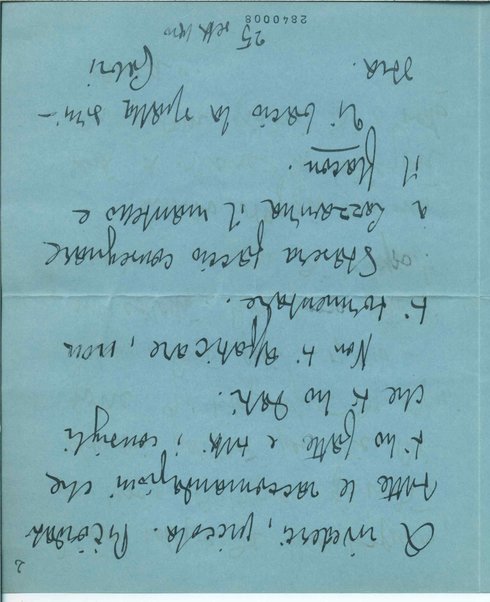 2
A rivederci, piccola. Ricordati
tutte le raccomandazioni che
ti ho fatte e tutti i consigli
che ti ho dati.
Non ti affaticare, non
ti tormentare.
Stasera faccio consegnare
a Lazzarina il mantello e
il flacon.
Ti bacio la spalla sini-
stra.
Gabri
25 sett.
2840008